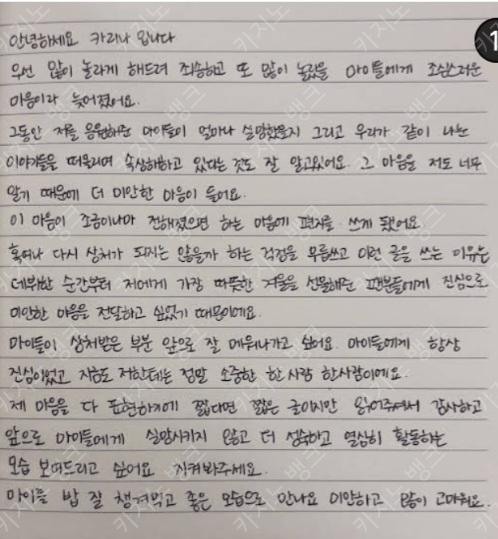 안녕하세요 카리나 입니다
우선 많이 놀라게 해드려 죄송하고 또 많이 놀랐을 마이들에게 조심스러운
마음이라 늦어졌어요.
그동안 저를 응원해준 마이들이 얼마나 실망했을지 그리고 우리가 같이 나눈
이야기들을 떠올리며 속상해하고 있다는 것도 잘 알고있어요. 그 마음을 저도 너무
알기 때문에 더 미안한 마음이 들어요.
이 마음이 조금이나마 전해졌으면 하는 마음에 편지를 쓰게 됐어요.
혹여나 다시 상처가 되지는 않을까 하는 걱정을 무릅쓰고 이런 글을 쓰는 이유는
데뷔한 순간부터 저에게 가장 따뜻한 겨울을 선물해준 팬분들에게 진심으로
미안한 마음을 전달하고 싶었기 때문이에요.
마이들이 상처받은 부분 앞으로 잘 메워나가고 싶어요. 마이들에게 항상
진심이었고 지금도 저한테는 정말 소중한 한 사람 한사람이에요.
제 마음을 다 표현하기에 짧다면 짧은 글이지만 읽어주셔서 감사하고
앞으로 마이들에게 실망시키지 않고 더 성숙하고 열심히 활동하는
모습 보여드리고 싶어요 지켜봐주세요.
마이들 밥 잘 챙겨먹고 좋은 모습으로 만나요 미안하고 많이 고마워요.
1
카지노 뱅크